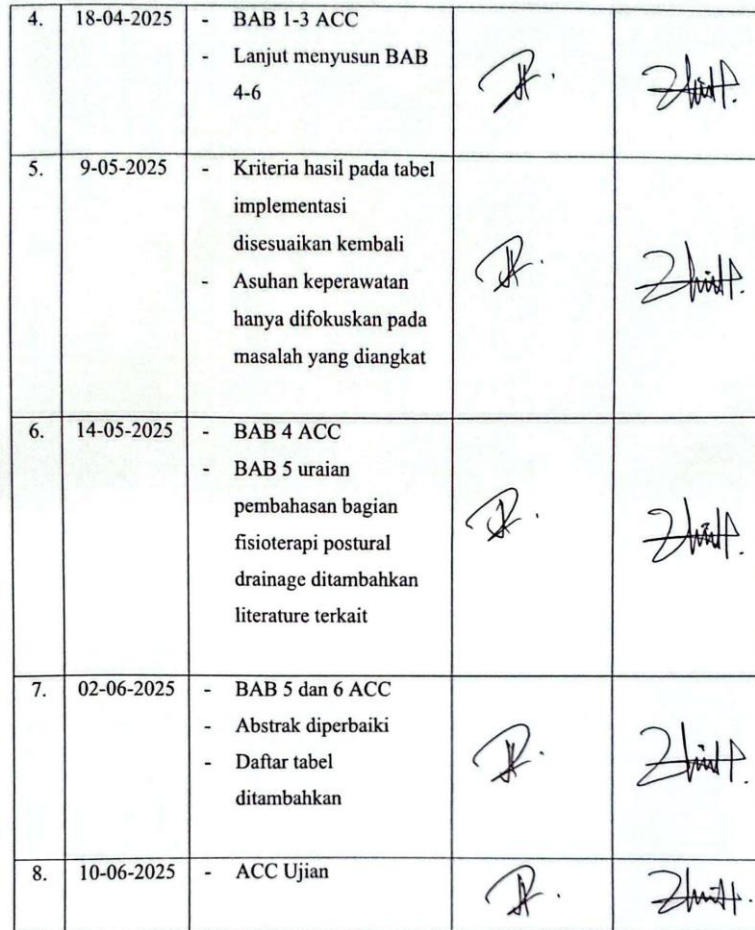 4. 18-04-2025 - BAB 1-3 ACC
- Lanjut menyusun BAB
4-6
5. 9-05-2025 - Kriteria hasil pada tabel
implementasi
disesuaikan kembali
- Asuhan keperawatan
hanya difokuskan pada
masalah yang diangkat
6. 14-05-2025 - BAB 4 ACC
- BAB 5 uraian
pembahasan bagian
fisioterapi postural
drainage ditambahkan
literature terkait
7. 02-06-2025 - BAB 5 dan 6 ACC
- Abstrak diperbaiki
- Daftar tabel
ditambahkan
8. 10-06-2025 - ACC Ujian